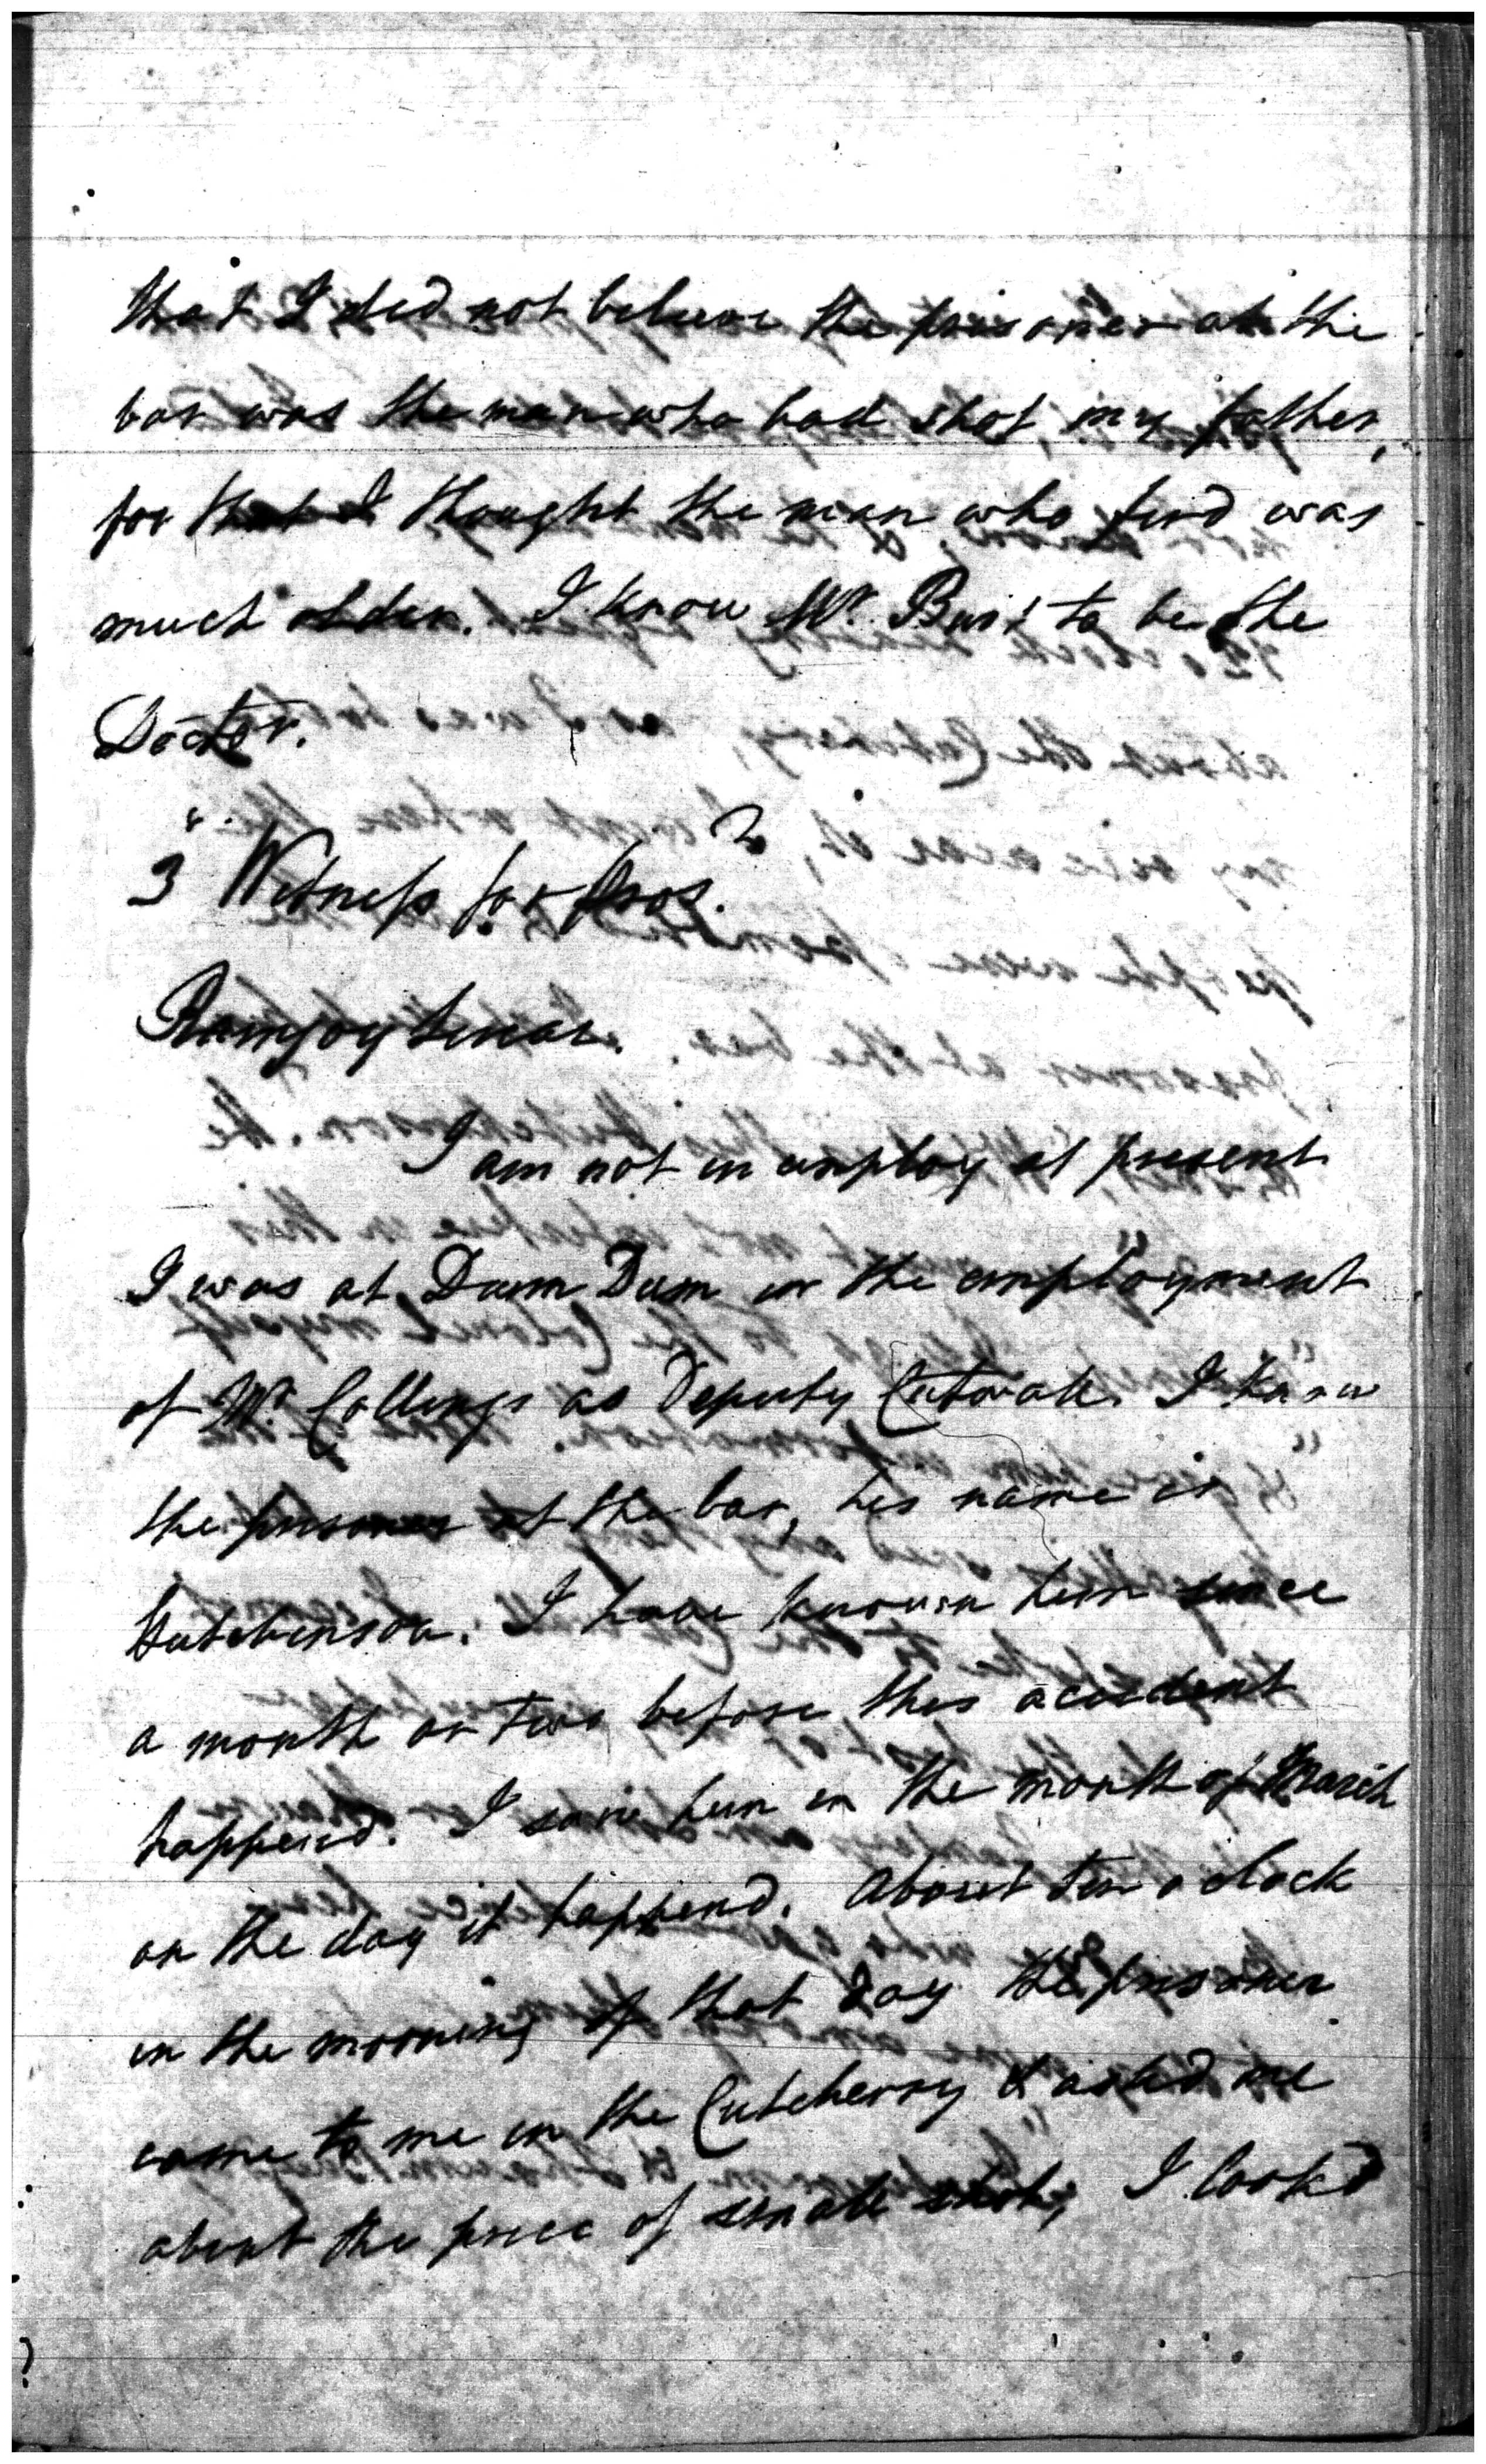 that I did not believe the prisoner at the
bar was the man who had shot my father,
for that I thought the man who fird was
much older. I know Mr. Burt to be the
Doctor.
3d Witness for pros.
Ramjoy
I am not in employ at present
I was at Dum Dum in the employment
of Mr. Collings as Deputy Cutwall. I know
the prisoner at the bar, his name is
Hutchinson. I have known him since
a month or two before this accident
happend. I saw him in the month of March
on the day it happend. About ten o clock
in the morning of that day the prisoner
came to me in the Cutcherry & asked me
about the price of small shot, I look'd